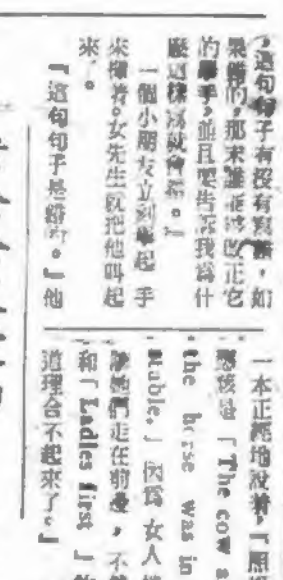 ，這句句子有沒有寫錯，如
果錯的，那末誰能够改正它
的舉手，並且要告訴我爲什
麽這樣寫就會錯。』
一個小朋友立刻舉起手
來 着。女先生就把他叫起
來。
『這句句子是錯的。』他
一本正經地說着，『照
應該是「The cow a
the horse was in
stable.」因爲女人
她們走在前邊，不
和「Ladies first」的
道理合不起來了。』